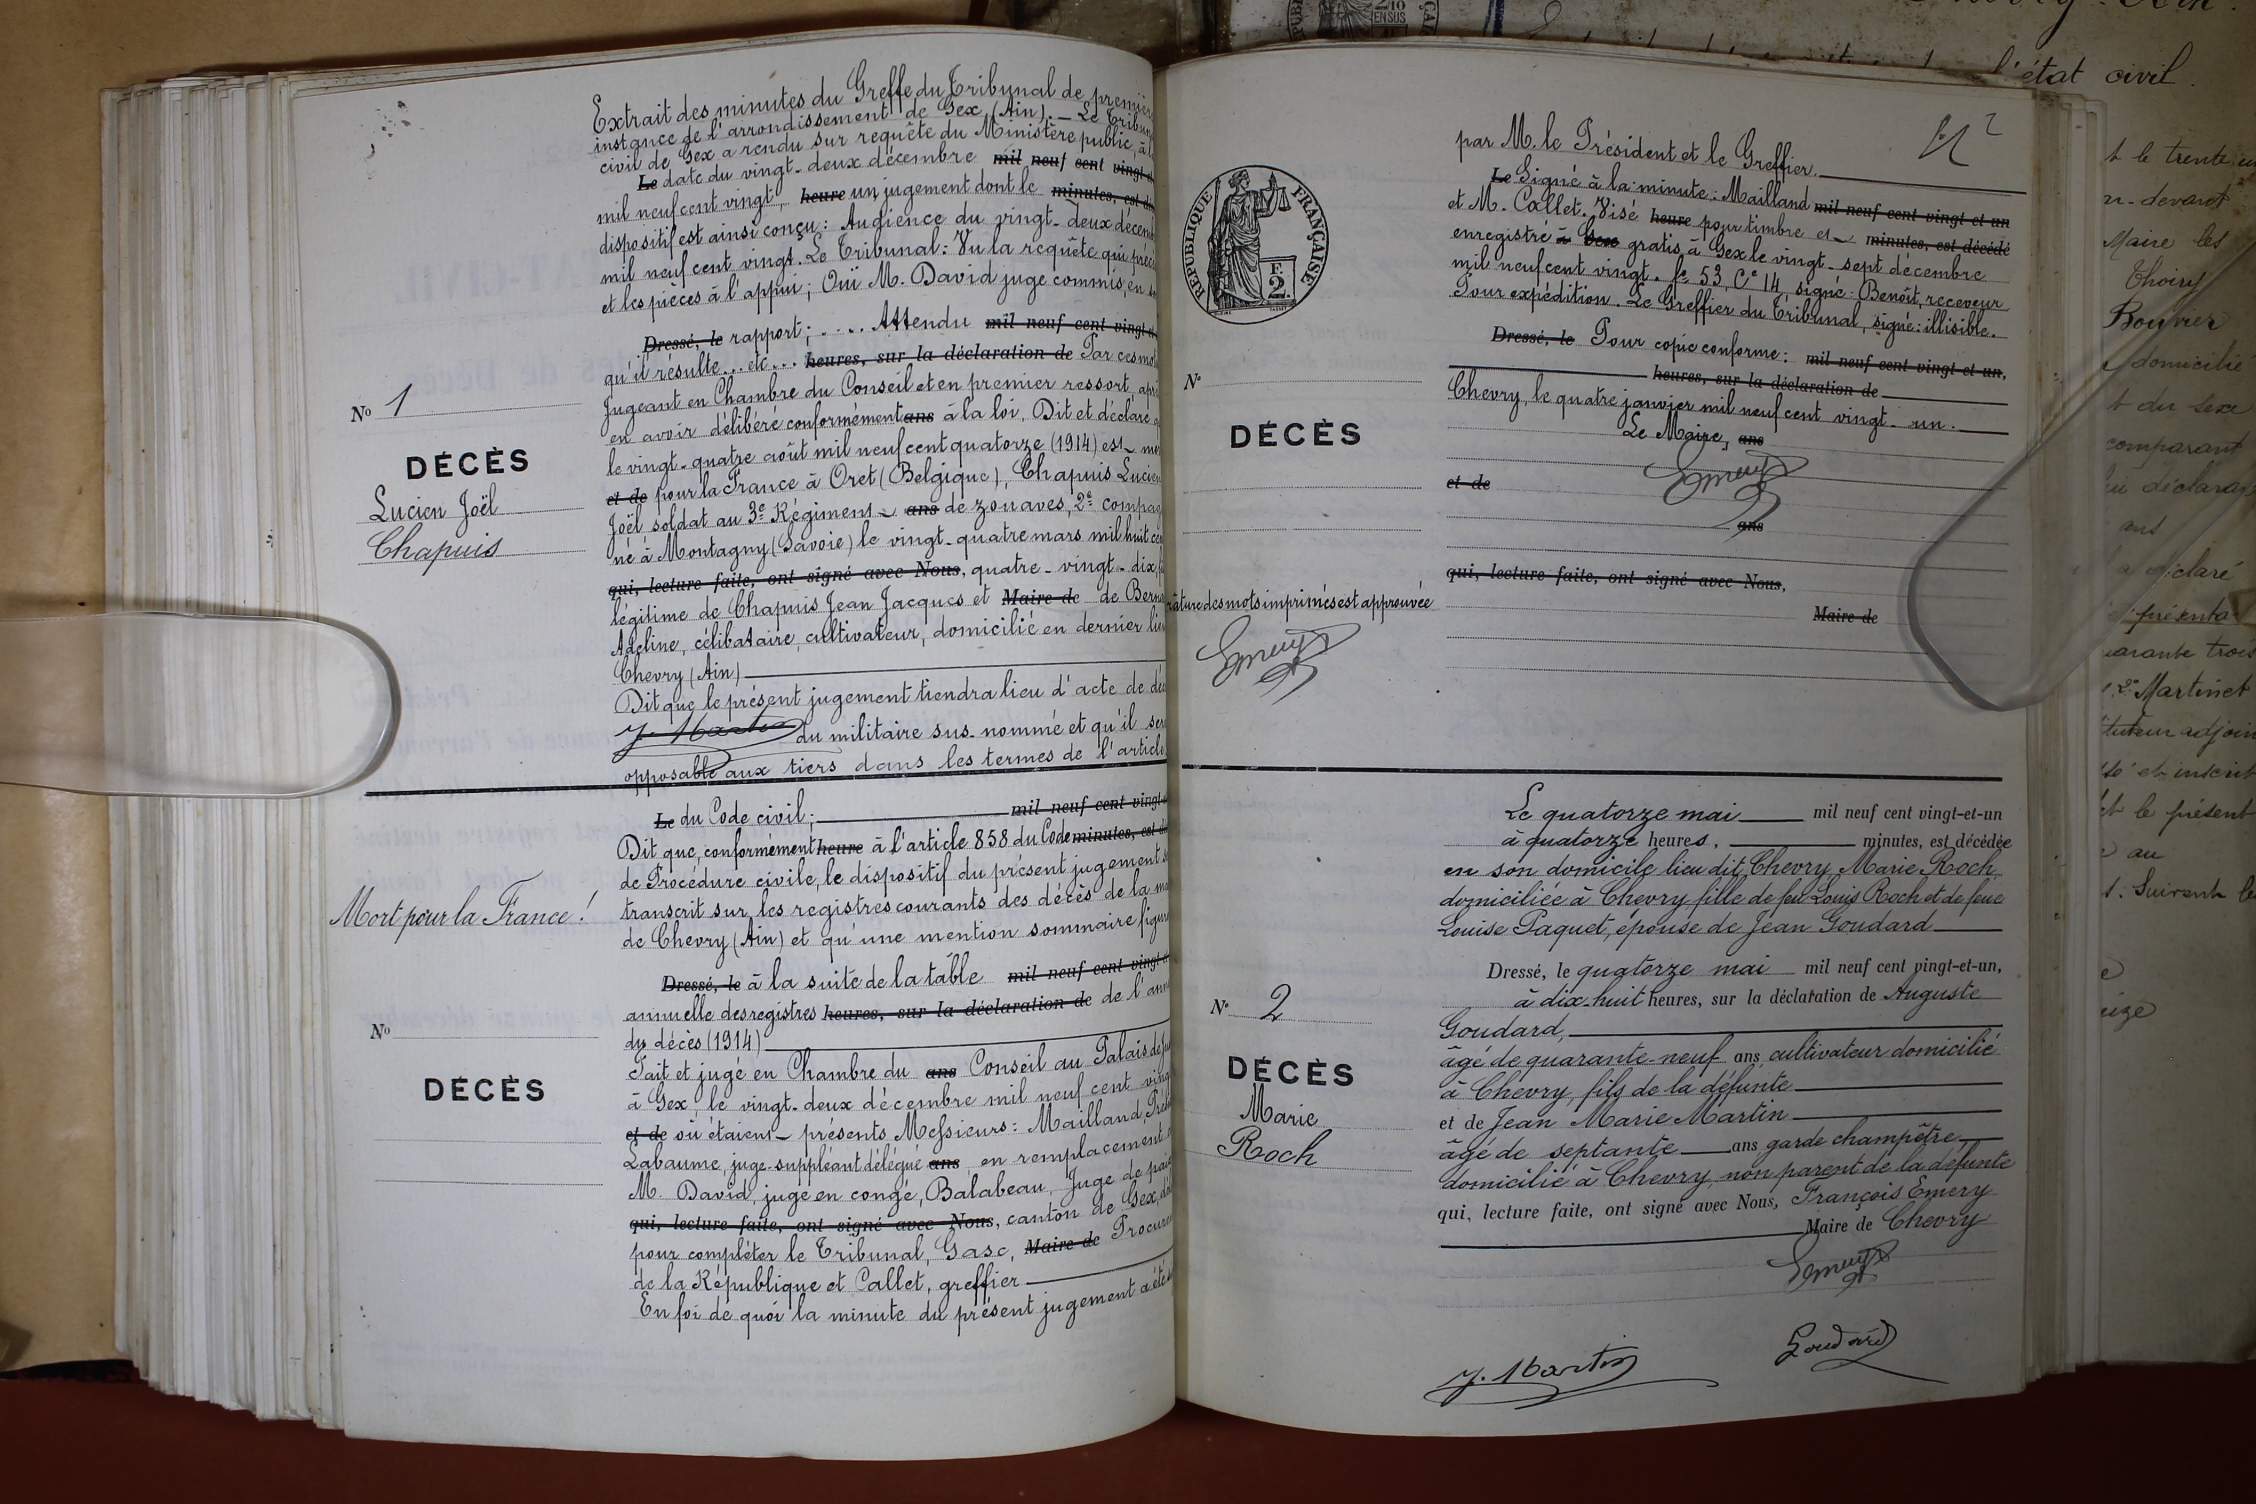 Extrait des minutes du Greffe du Tribunal de premièr
instance de l'arrondissement de Gex (Ain). _ Le Tribun
civil de Gex a rendu sur requête du Ministère public, à l
Le date du vingt-deux décembre mil neuf cent vingt-e
mil neuf cent vingt, heure un jugement dont le minutes, est dé
dispositif est ainsi conçu : Audience du vingt-deux décem
mil neuf cent vingt. Le Tribunal : Vu la requête qui préc
et les pièces à l'appui ; Ouï M. David juge commis, en s
Dressé, le rapport ; .... Attendu mil neuf cent vingt-e
qu'il résulte...etc... heures, sur la déclaration de Par ces mot
Jugeant en Chambre du Conseil et en premier ressort, apr
en avoir délibéré conformément ans à la loi. Dit et déclare q
le vingt-quatre août mil neuf cent quatorze (1914) est mor
et de pour la France à Oret (Belgique), Chapuis Lucien
Joël soldat au 3e Régiment ans de zouaves, 2e compag
né à Montagny (Savoie) le vingt-quatre mars mil huit cen
qui, lecture faite, ont signé avec Nous, quatre-vingt-dix, f
légitime de Chapuis Jean Jacques et Maire de de Berna
Adeline, célibataire, cultivateur, domicilié en dernier lieu
Chevry (Ain)
Dit que le présent jugement tiendra lieu d'acte de déc
J. Martin du militaire sus-nommé et qu'il ser
opposable aux tiers dans les termes de l'article
No 1
DÉCÈS
Lucien Joël
Chapuis
Le du Code civil ; mil neuf cent vingt-e
Dit que, conformément heure à l'article 858 du Code minutes, est dé
de Procédure civile, le dispositif du présent jugement s
transcrit sur les registres courants des décès de la ma
de Chevry (Ain) et qu'une mention sommaire figur
Dressé, le à la suite de la table mil neuf cent vingt-e
annuelle des registres heures, sur la déclaration de de l'ann
du décès (1914)
Fait et jugé en Chambre du ans Conseil au Palais de ju
à Gex, le vingt-deux décembre mil neuf cent ving
et de où étaient présents Messieurs : Mailland, Prési
Labaume, juge-suppléant délégué ans en remplacement d
M. David, juge en congé, Balabeau, Juge de paix
qui, lecture faite, ont signé avec Nous, canton de Gex,
pour compléter le Tribunal, Gasc, Maire de Procureu
de la République et Callet, greffier
En foi de quoi la minute du présent jugement a été s
Mort pour la France !
No
DÉCÈS
2
par M. le Président et le Greffier.
Le Signé à la minute : Mailland mil neuf cent vingt et un
et M. Callet. Visé heure pour timbre et minutes, est décédé
enregistré à Gex gratis, à Gex le vingt-sept décembre
mil neuf cent vingt. fo 53, Ce 14, signé : Benoît, receveur
Pour expédition. Le Greffier du Tribunal, signé : illisible.
Dressé, le Pour copie conforme : mil neuf cent vingt-et-un,
heures, sur la déclaration de
Chevry, le quatre janvier mil neuf cent vingt-un.
Le Maire, ans
Emery
et de
ans
qui, lecture faite, ont signé avec Nous,
Maire de
RÉPUBLIQUE FRANÇAISE
F.
2.
No
DÉCÈS
rature des mots imprimés est approuvée
Emery
Le quatorze mai mil neuf cent vingt-et-un
à quatorze heures, minutes, est décédée
en son domicile lieu dit Chevry Marie Roch
domiciliée à Chevry fille de feu Louis Roch et de feue
Louise Paquet, épouse de Jean Goudard
Dressé, le quatorze mai mil neuf cent vingt-et-un,
à dix-huit heures, sur la déclaration de Auguste
Goudard,
âgé de quarante-neuf ans, cultivateur domicilié
à Chevry, fils de la défunte
et de Jean Marie Martin
âgé de septante ans garde champêtre
domicilié à Chevry non parent de la défunte
qui, lecture faite, ont signé avec Nous, François Emery
Maire de Chevry
Emery
J. Martin
Goudard
No 2
DÉCÈS
Marie
Roch
l'état civil.
t le trente
devant
Maire les
Thoiry
Bouvier
domicilié
t du sexe
comparant
déclara
ans
claré
présenta
uarante trois
2e Martinet
tuteur adjoin
et inscrit
t le présent
au
t. Suivent le